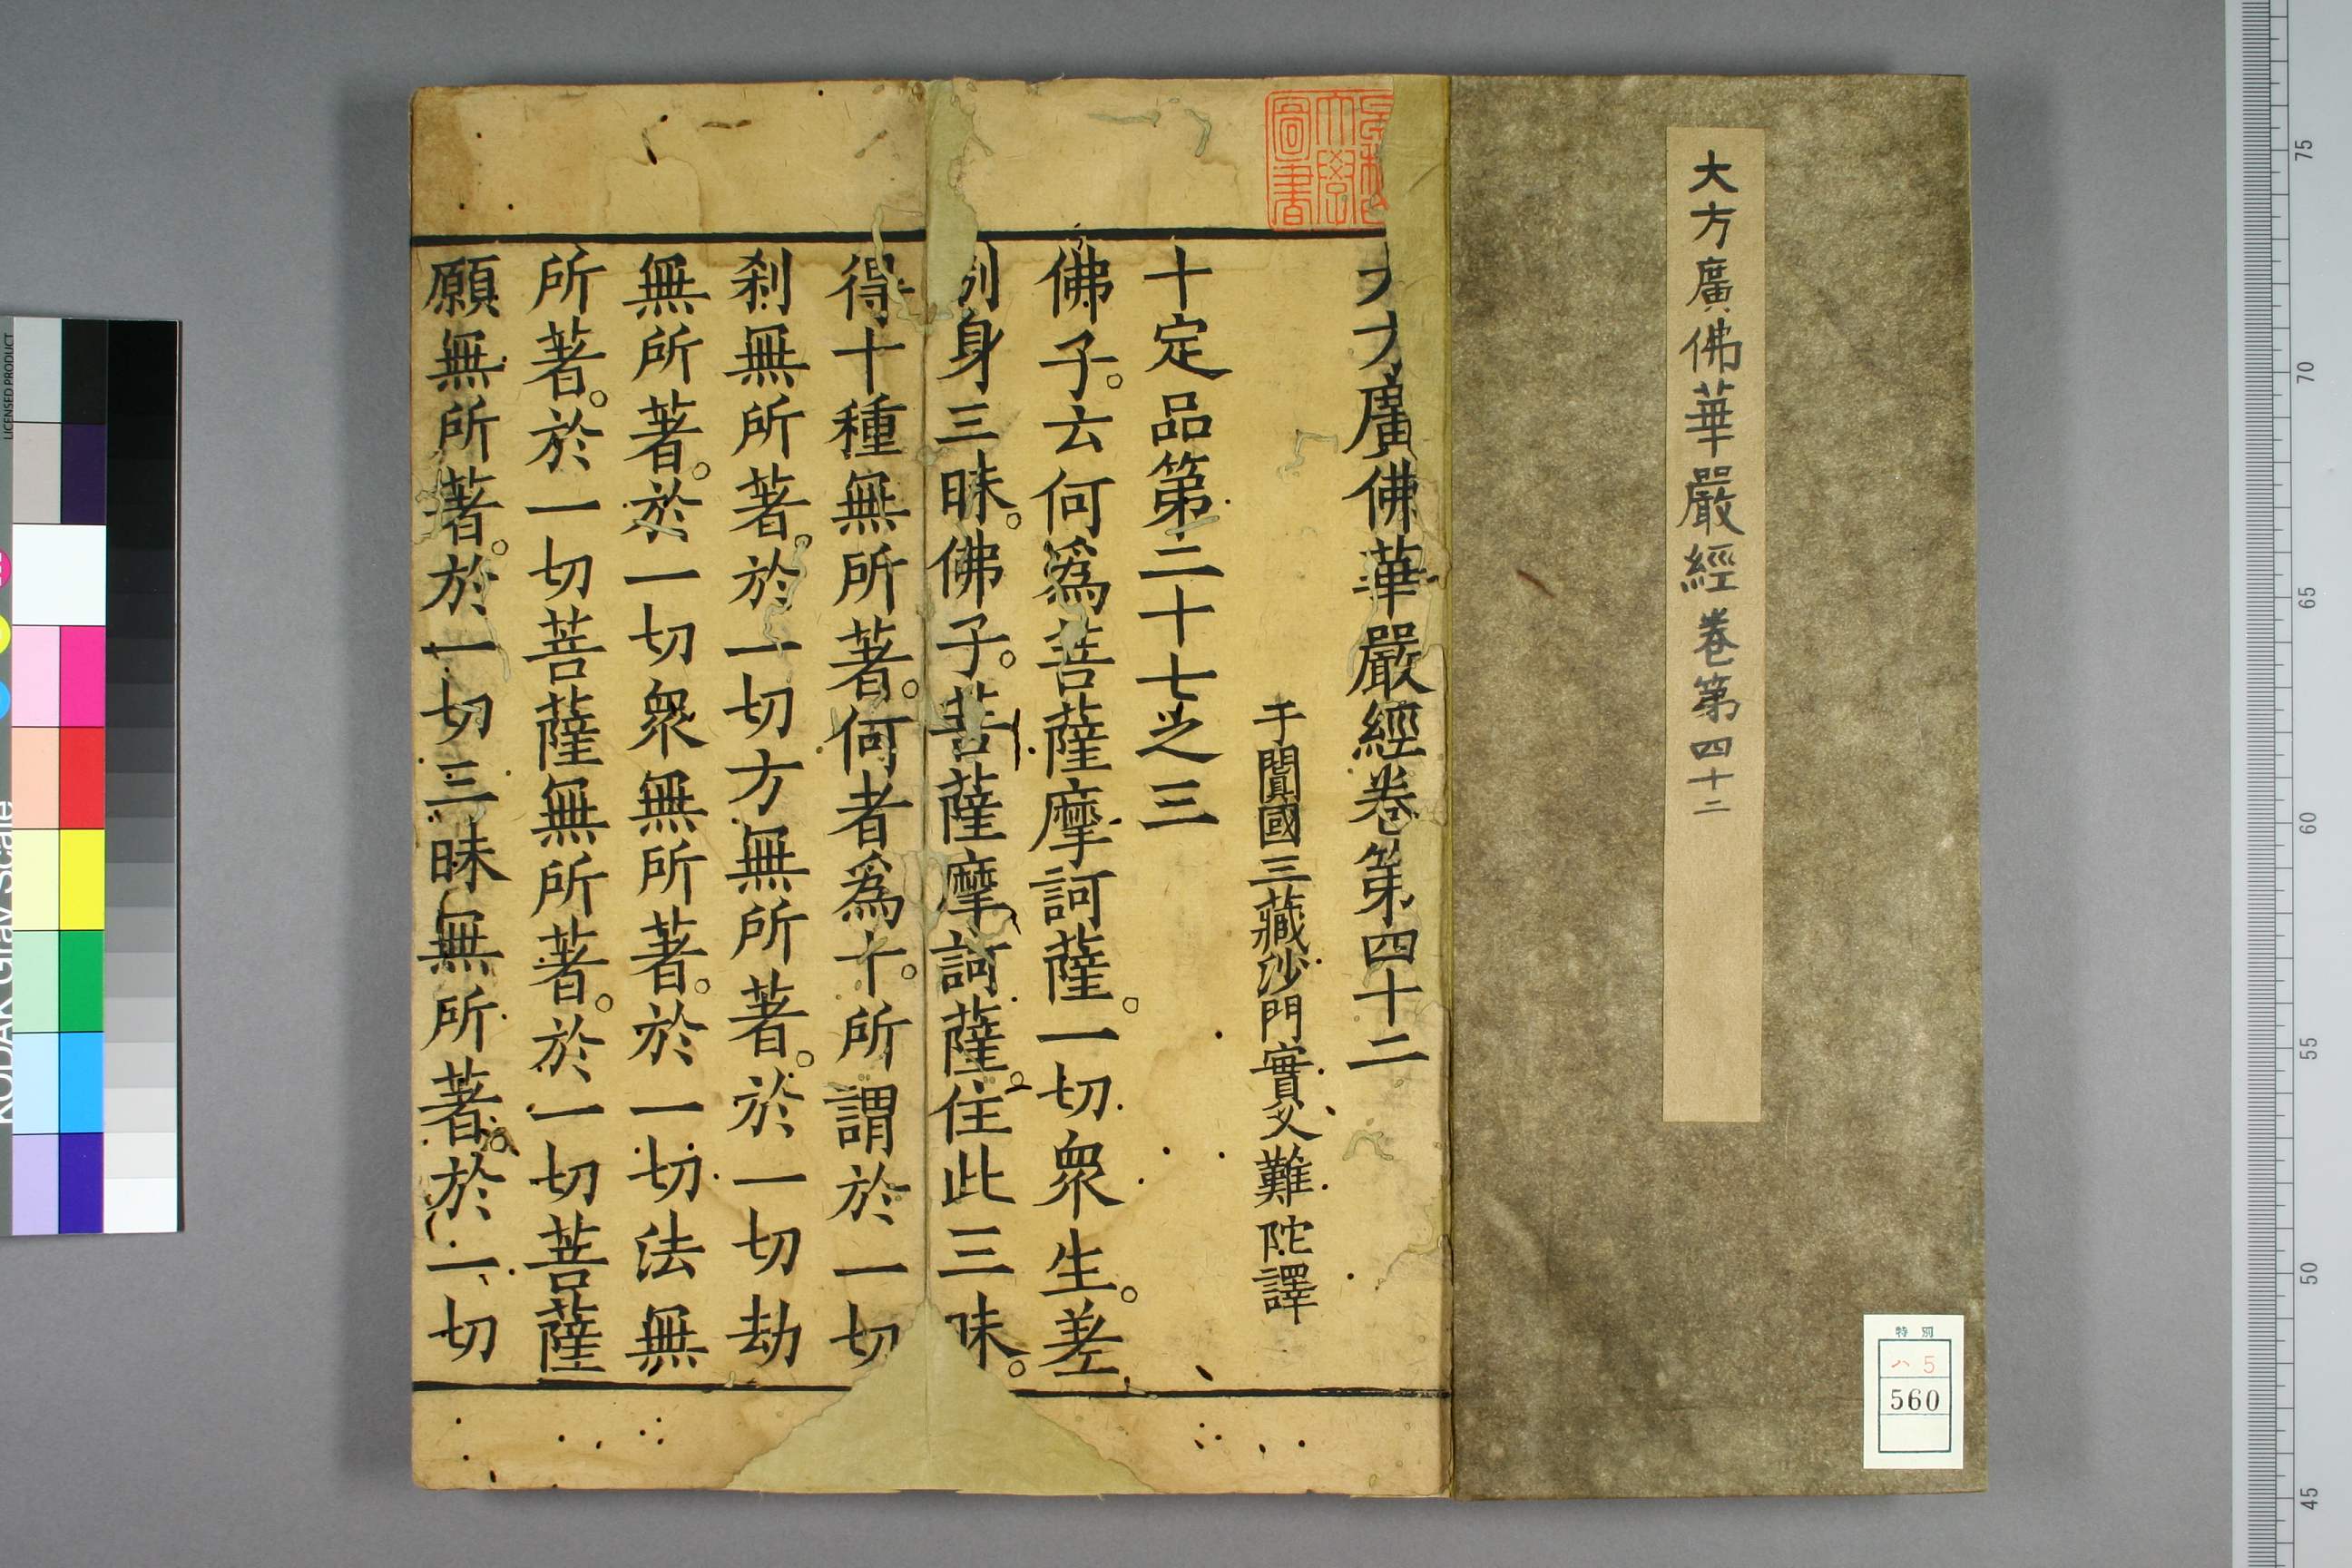 大方廣佛華嚴經卷第四十二
特別
ハ5
560
大方廣佛華嚴經卷第四十二
于闐國三藏沙門實叉難陀譯
十定品第二十七之三
佛子。云何爲菩薩摩訶薩。一切衆生。差
別身三昧。佛子。菩薩摩訶薩。住此三昧。
得十種無所著。何者爲十。所謂於一切
刹無所著。於一切方無所著。於一切劫
無所著。於一切衆無所著。於一切法無
所著。於一切菩薩無所著。於一切菩薩
願無所著。於一切三昧無所著。於一切
圖書
75
70
65
60
55
50
45
LICENSED PRODUCT
KODAK Gray Scale